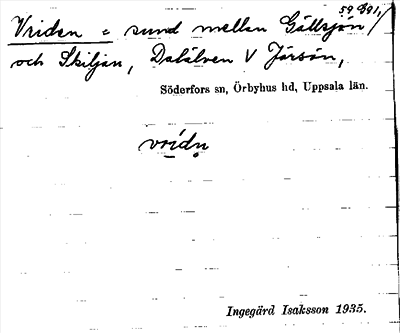 59 B91,
Vriden = sund mellan Gällsjön
och Skiljan, Dalälven V Jörsön,
Söderfors sn, Örbyhus hd, Uppsala län.
vrídn̥
Ingegärd Isaksson 1935.